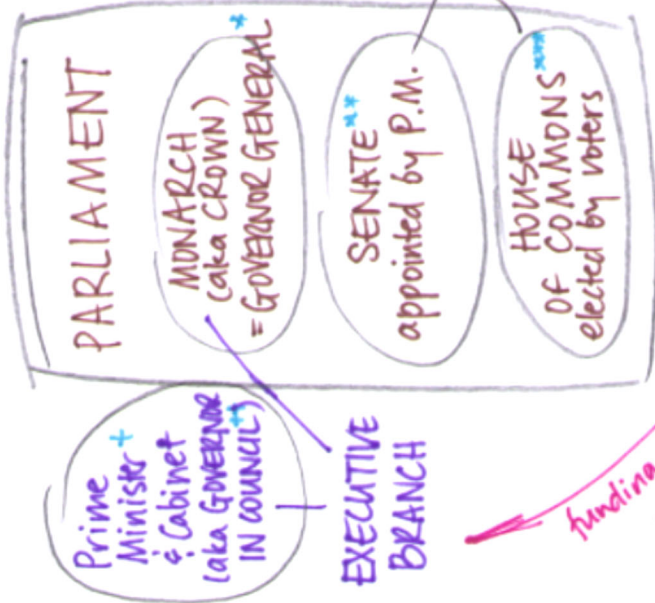 PARLIAMENT
MONARCH
(aka CROWN)
= GOVERNOR GENERAL*
SENATE**
appointed by P.M.
HOUSE***
OF COMMONS
elected by voters
Prime
Minister+
& Cabinet
(aka GOVERNOR
IN COUNCIL++)
EXECUTIVE
BRANCH
funding